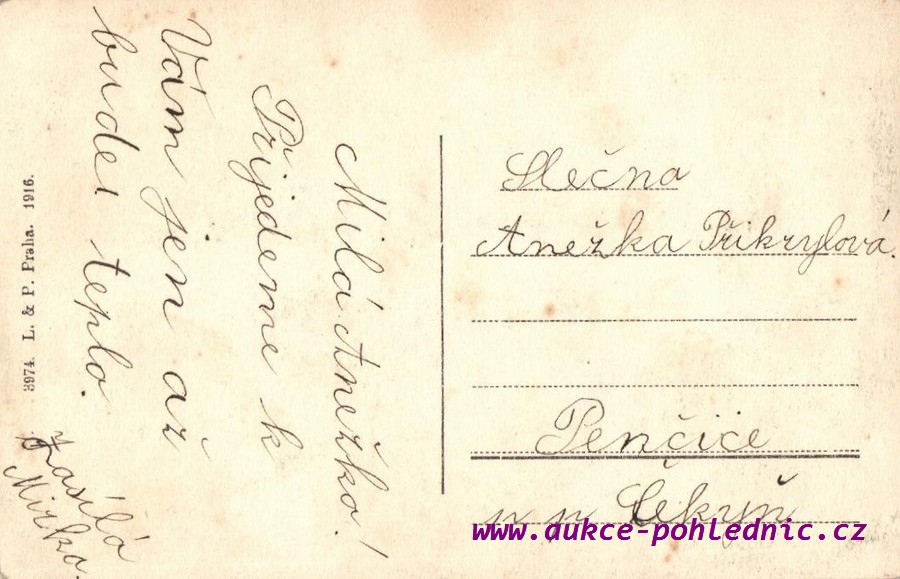 Milá Anežko!
Přijedeme k
Vám jen až
bude teplo.
Zasílá
Mirka.
3974. L. & P. Praha. 1916.
Slečna
Anežka Přikrylová.
Penčice
Čekyň
www.aukce-pohlednic.cz